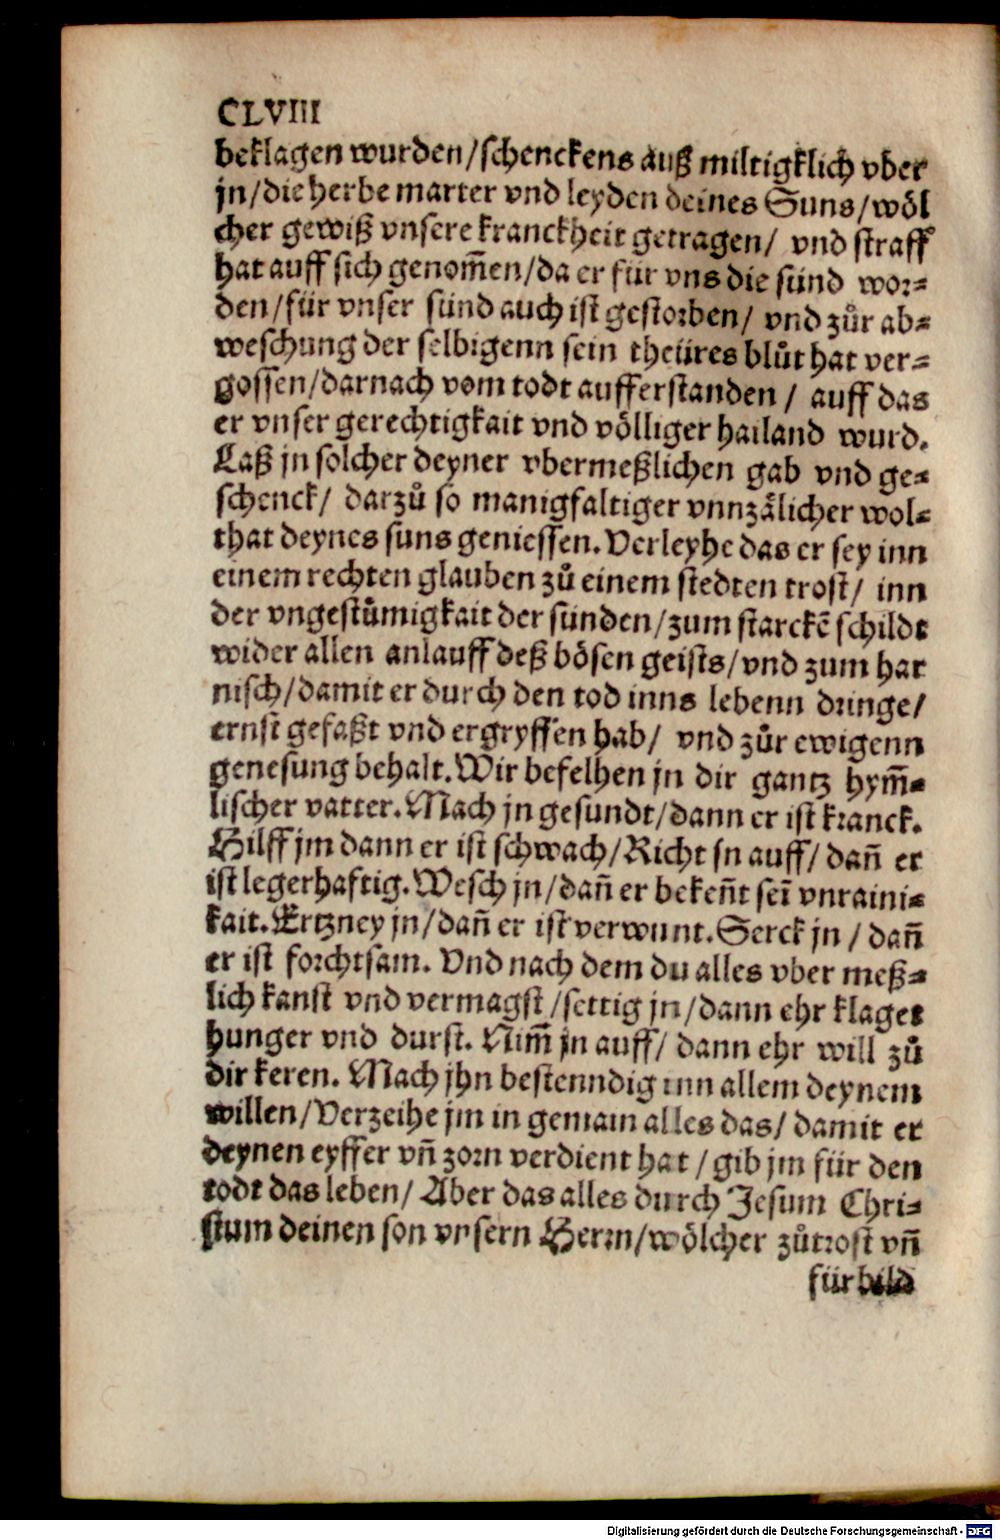 CLVIII
beklagen wurden/schenckens auß miltigklich vber
jn/die herbe marter vnd leyden deines Suns/wöl
cher gewiß vnsere kranckheit getragen/ vnd straff
hat auff sich genom̃en/da er für vns die sünd wor⸗
den/für vnser sünd auch ist gestorben/ vnd zůr ab⸗
weschung der selbigenn sein theüres blůt hat ver⸗
gossen/darnach vom todt aufferstanden / auff das
er vnser gerechtigkait vnd völliger hailand wurd.
Laß jn solcher deyner vbermeßlichen gab vnd ge⸗
schenck/ darzů so manigfaltiger vnnzälicher wol⸗
that deynes suns geniessen. Verleyhe das er sey inn
einem rechten glauben zů einem stedten trost/ inn
der vngestůmigkait der sünden/zum starckẽ schildt
wider allen anlauff deß bösen geists/vnd zum har
nisch/damit er durch den tod inns lebenn dringe/
ernst gefaßt vnd ergryffen hab/ vnd zůr ewigenn
genesung behalt. Wir befelhen jn dir gantz hym̃⸗
lischer vatter. Mach jn gesundt/dann er ist kranck.
Hilff jm dann er ist schwach/Richt jn auff/ dañ er
ist legerhaftig. Wesch jn/dañ er bekeñt seĩ vnraini⸗
kait. Ertzney jn/dañ er ist verwunt. Serck jn / dañ
er ist forchtsam. Vnd nach dem du alles vber meß⸗
lich kanst vnd vermagst /settig jn/dann ehr klaget
hunger vnd durst. Nim̃ jn auff/ dann ehr will zů
dir keren. Mach jhn bestenndig inn allem deynem
willen/Verzeihe jm in gemain alles das/ damit er
deynen eyffer vñ zorn verdient hat /gib jm für den
todt das leben/ Aber das alles durch Jesum Chri⸗
stum deinen son vnsern Herrn/wölcher zůtrost vñ
für bild
Digitalisierung gefördert durch die Deutsche Forschungsgemeinschaft - DFG